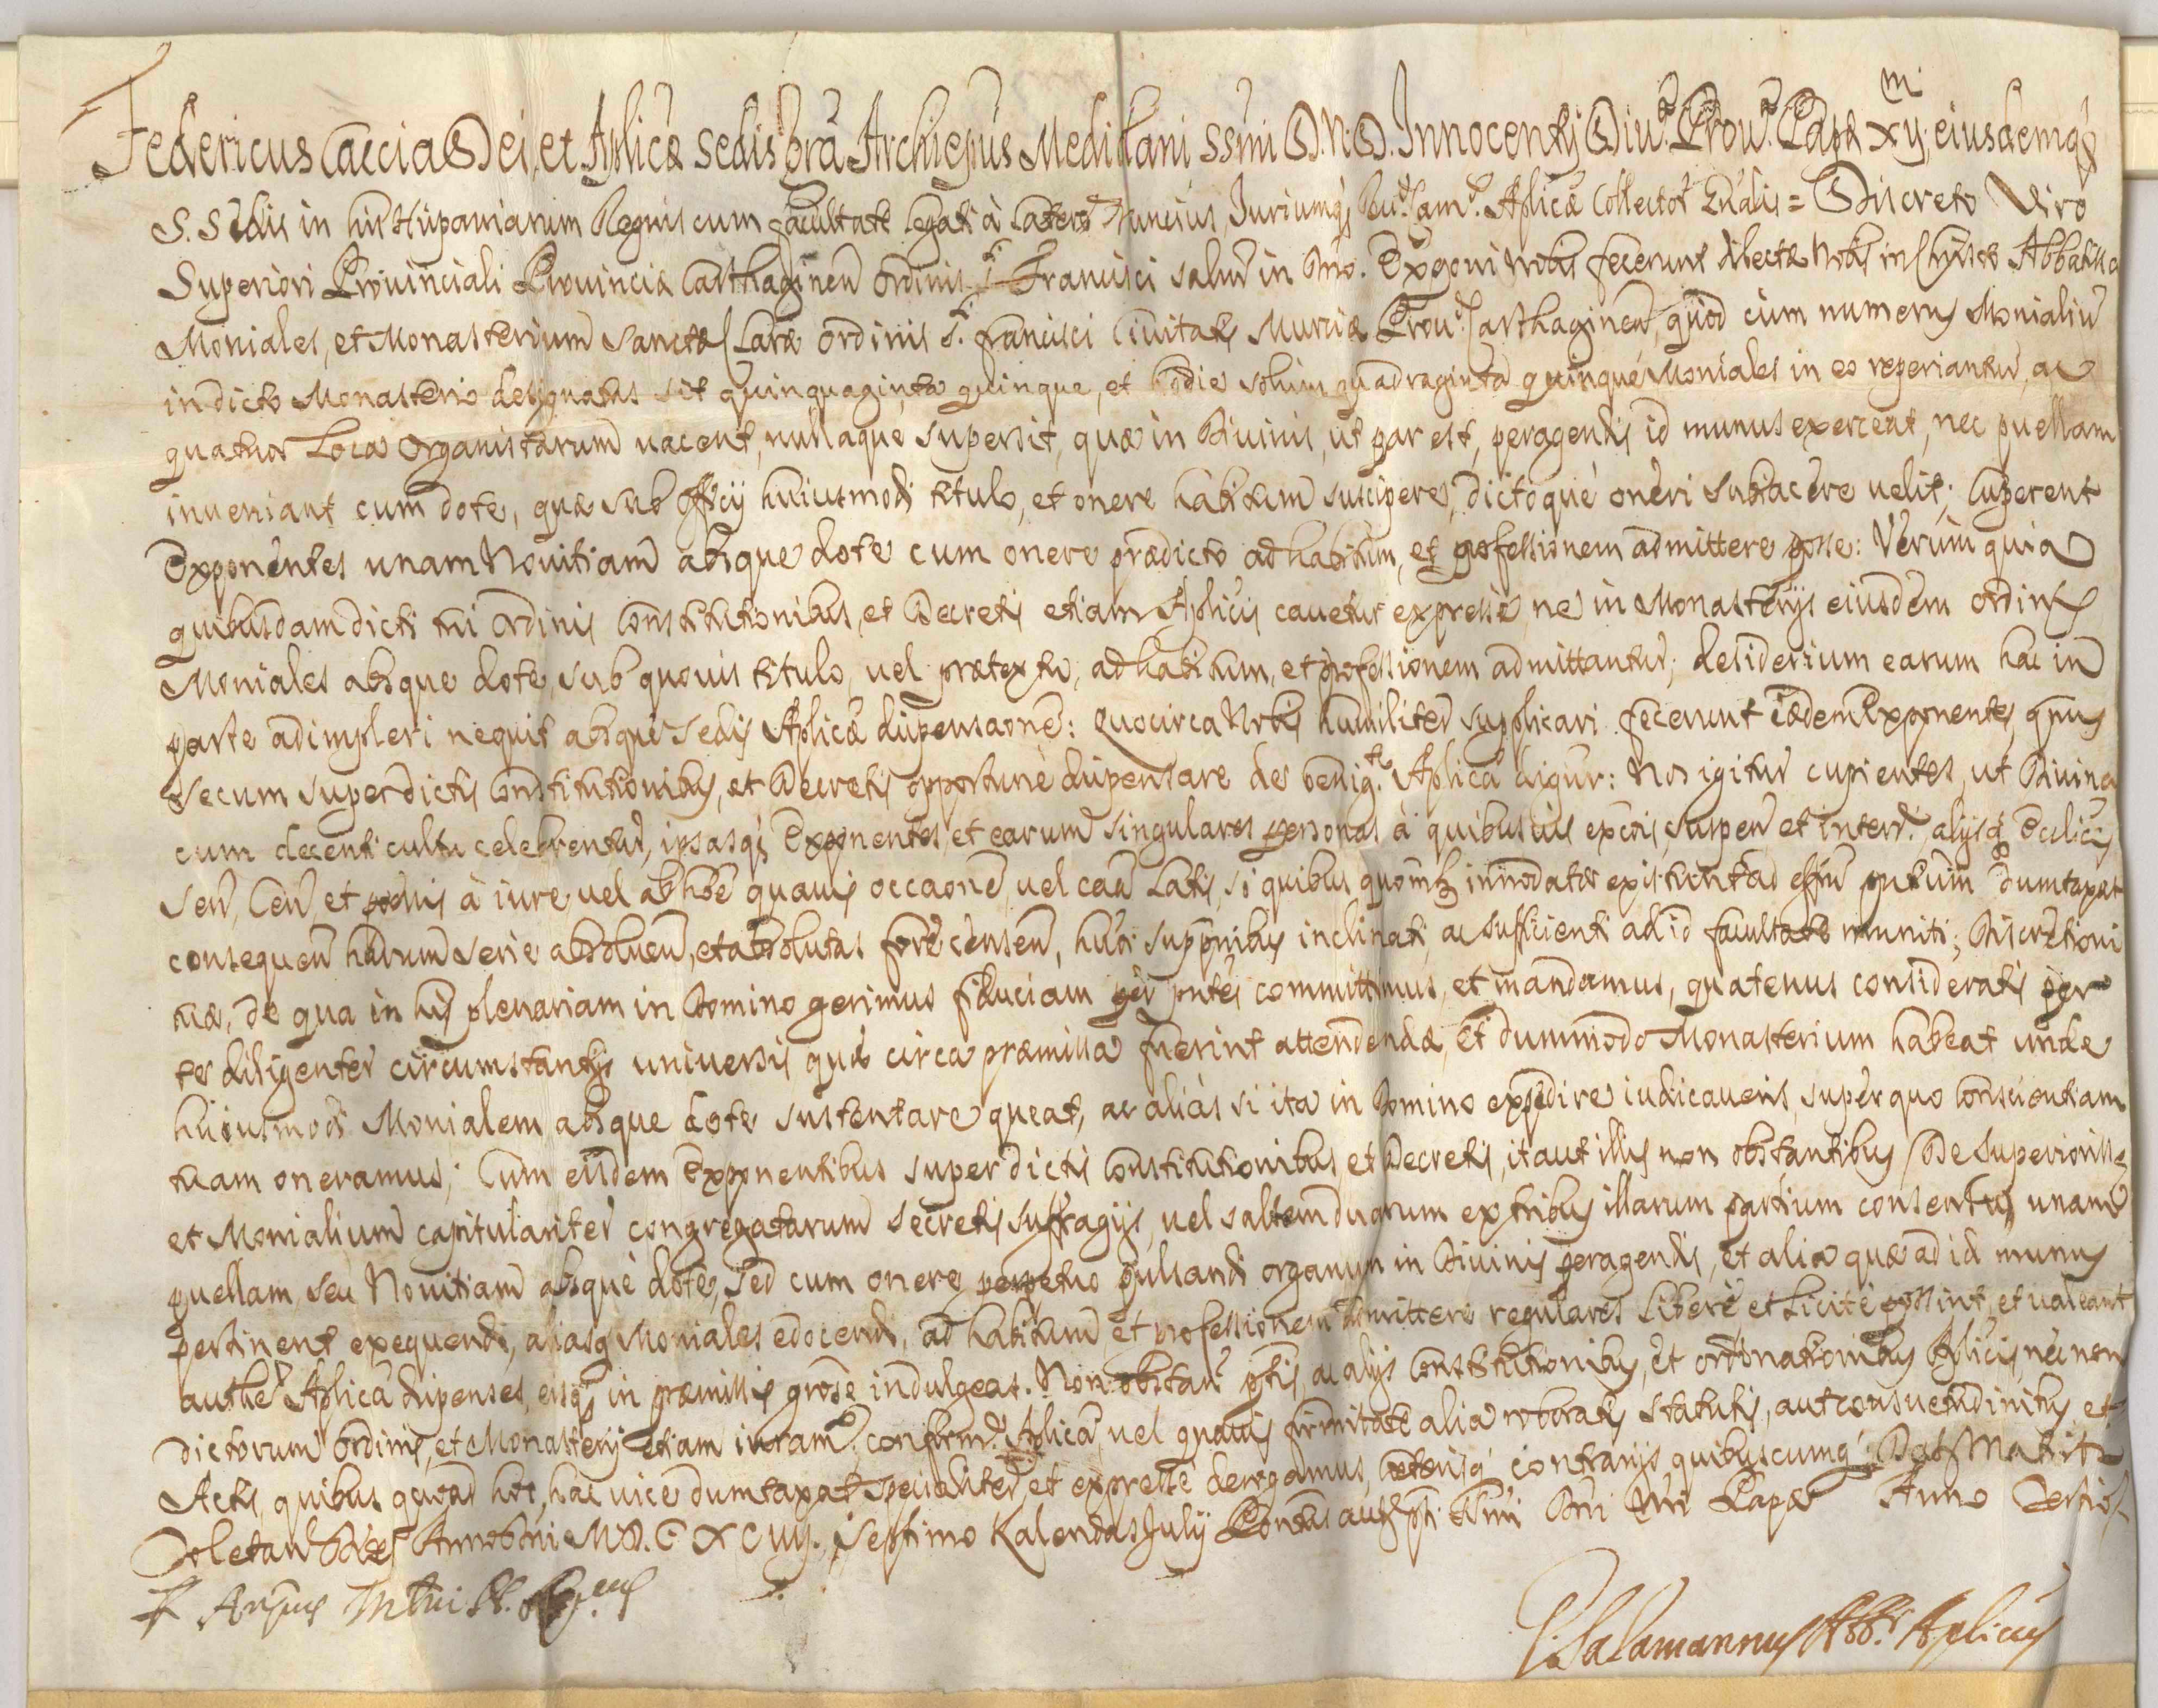 Federicus Caccia Dei, et Aplicæ sedis grã Archiepus Mediolani SSmi D. N. D. Innocentij Diu.ª Prou.ª Papæ XIJ. eiusdemq́
S. Sedis in his Hispaniarum Regnis cum facultate Legati à Latere Nuncius, Iuriumq́ Cam. Aplicæ Collector Gñalis = Discreto Viro
Superiori Prouinciali Prouinciæ Carthaginen ordinis S. Francisci salut in Dno. Exponi Nobis fecerunt dilectæ Nobis in Christo Abbatissa
Moniales, et Monasterium Sanctæ Claræ ordinis S. Francisci Ciuitatis Murciæ Prou. Carthaginen, quòd cùm numerus Monialiũ
in dicto Monasterio designatus sit quinquaginta quinque, et hodie solùm quadraginta quinque Moniales in eo reperiantur, ac
quatuor Loca organistarum uacent, nullaque supersit, quæ in Diuinis, ut par est, peragendis id munus exerceat, nec puellam
inueniant cum dote, quæ sub officij huiusmodi titulo, et onere habitum suscipere, dictoque oneri subiacere uelit; Cuperent
Exponentes unam Nouitiam absque dote cum onere prædicto ad habitum, et professionem admittere posse: Verùm quia
quibusdam dicti tui ordinis Constitutionibus, et Decretis etiam Aplicis cauetur expressè, ne in Monasterijs eiusdem ordinis
Moniales absque dote, sub quouis titulo, uel prætextu, ad habitum, et professionem admittantur; desiderium earum hac in
parte adimpleri nequit absque Sedis Aplicæ dispensaone: Quocirca Nobis humiliter supplicari fecerunt eædem Exponentes, quus
secum super dictis Constitutionibus, et Decretis opportunè dispensare de benig.te Aplica dignur: Nos igitur cupientes, ut Diuina
cum decenti cultu celebrentur, ipsasq́ Exponentes, et earum singulares personas à quibusuis excõis, suspen et interd. alijsq́ Ecclicis
Sen, Cen, et pœnis à iure, uel ab hõe quauis occaone, uel caã latis, si quibus quomlt innodatæ existunt ad effũ pñtium dumtaxat
consequen harum serie absoluen, et absolutas fore censen, hmõi suppnibus inclinati, ac sufficienti ad id facultate muniti; Discretioni
tuæ, de qua in his plenariam in Domino gerimus fiduciam per pñtes committimus, et mandamus, quatenus consideratis per
te diligenter circumstantijs uniuersis quæ circa præmissa fuerint attendendæ, et dummodo Monasterium habeat unde
huiusmodi Monialem absque dote sustentare queat, ac aliàs si ita in Domino expedire iudicaueris, super quo Conscientiam
tuam oneramus; Cum eisdem Exponentibus super dictis Constitutionibus, et Decretis, ita ut illis non obstantibus, De Superiorissæ
et Monialium capitulariter congregatarum secretis suffragijs, uel saltem duarum ex tribus illarum partium consensu, unam
puellam, seu Nouitiam absque dote, sed cum onere perpetuo pulsandi organum in Diuinis peragendis, et alia quæ ad id munus
pertinent exequendi, aliasq́ Moniales edocendi, ad habitum et professionem admittere regulares liberè, et licitè possint, et ualeant
authe Aplica dispenses, eisq́ in præmissis gratiosè indulgeas. Non obstan pñtis, ac alijs Constitutionibus, et ordinationibus Aplicis, necnon
dictorum ordinis, et Monasterij etiam iuram.º confirm.e Aplica, uel quauis firmitate alia roboratis statutis, aut consuetudinibus, et
Actis, quibus quoad hoc, hac uice dumtaxat specialiter, et expressè derogamus, cæterisq́ contrarijs quibuscumq́. Dat Matriti
Toletan Diœc Anno Dni M.D.C.XCIIIJ. septimo Kalendas Julij Pontus autem pti SSmi Dni Nri Papæ Anno Tertio.
P. Salamannus Abbr. Aplicus